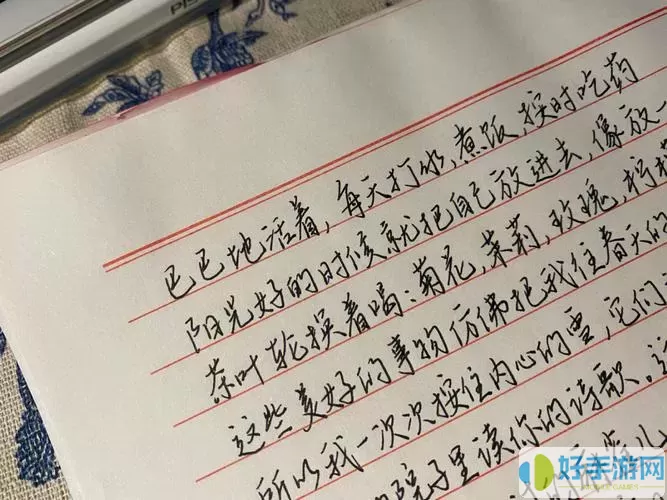 PIS
巴巴地活着，每天打水，煮饭，按时吃药
阳光好的时候就把自己放进去，像放一
茶叶轮换着喝：菊花，茉莉，玫瑰，柠檬
这些美好的事物仿佛把我往春天的
所以我一次次按住内心的雪，它们
院子里读你的诗歌。这
儿
好手游网